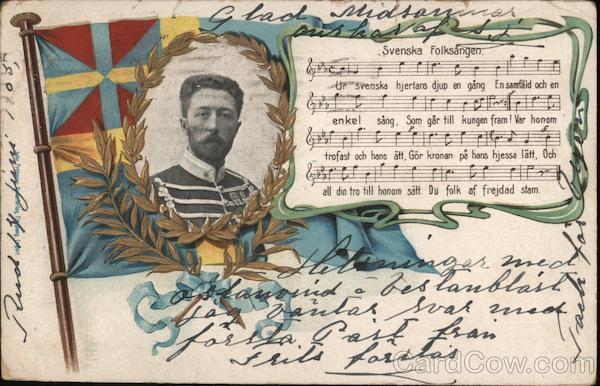 Glad Midsommar
Svenska Folksången.
Ur svenska hjertans djup en gång En samfäld och en
enkel sång, Som går till kungen fram! Var honom
trofast och hans ätt, Gör kronan på hans hjessa lätt, Och
all din tro till honom sätt. Du folk af frejdad stam.
Helsningar med
östanvind o Vestanblåst
jag väntar svar med
första Post från
1905
CardCow.com